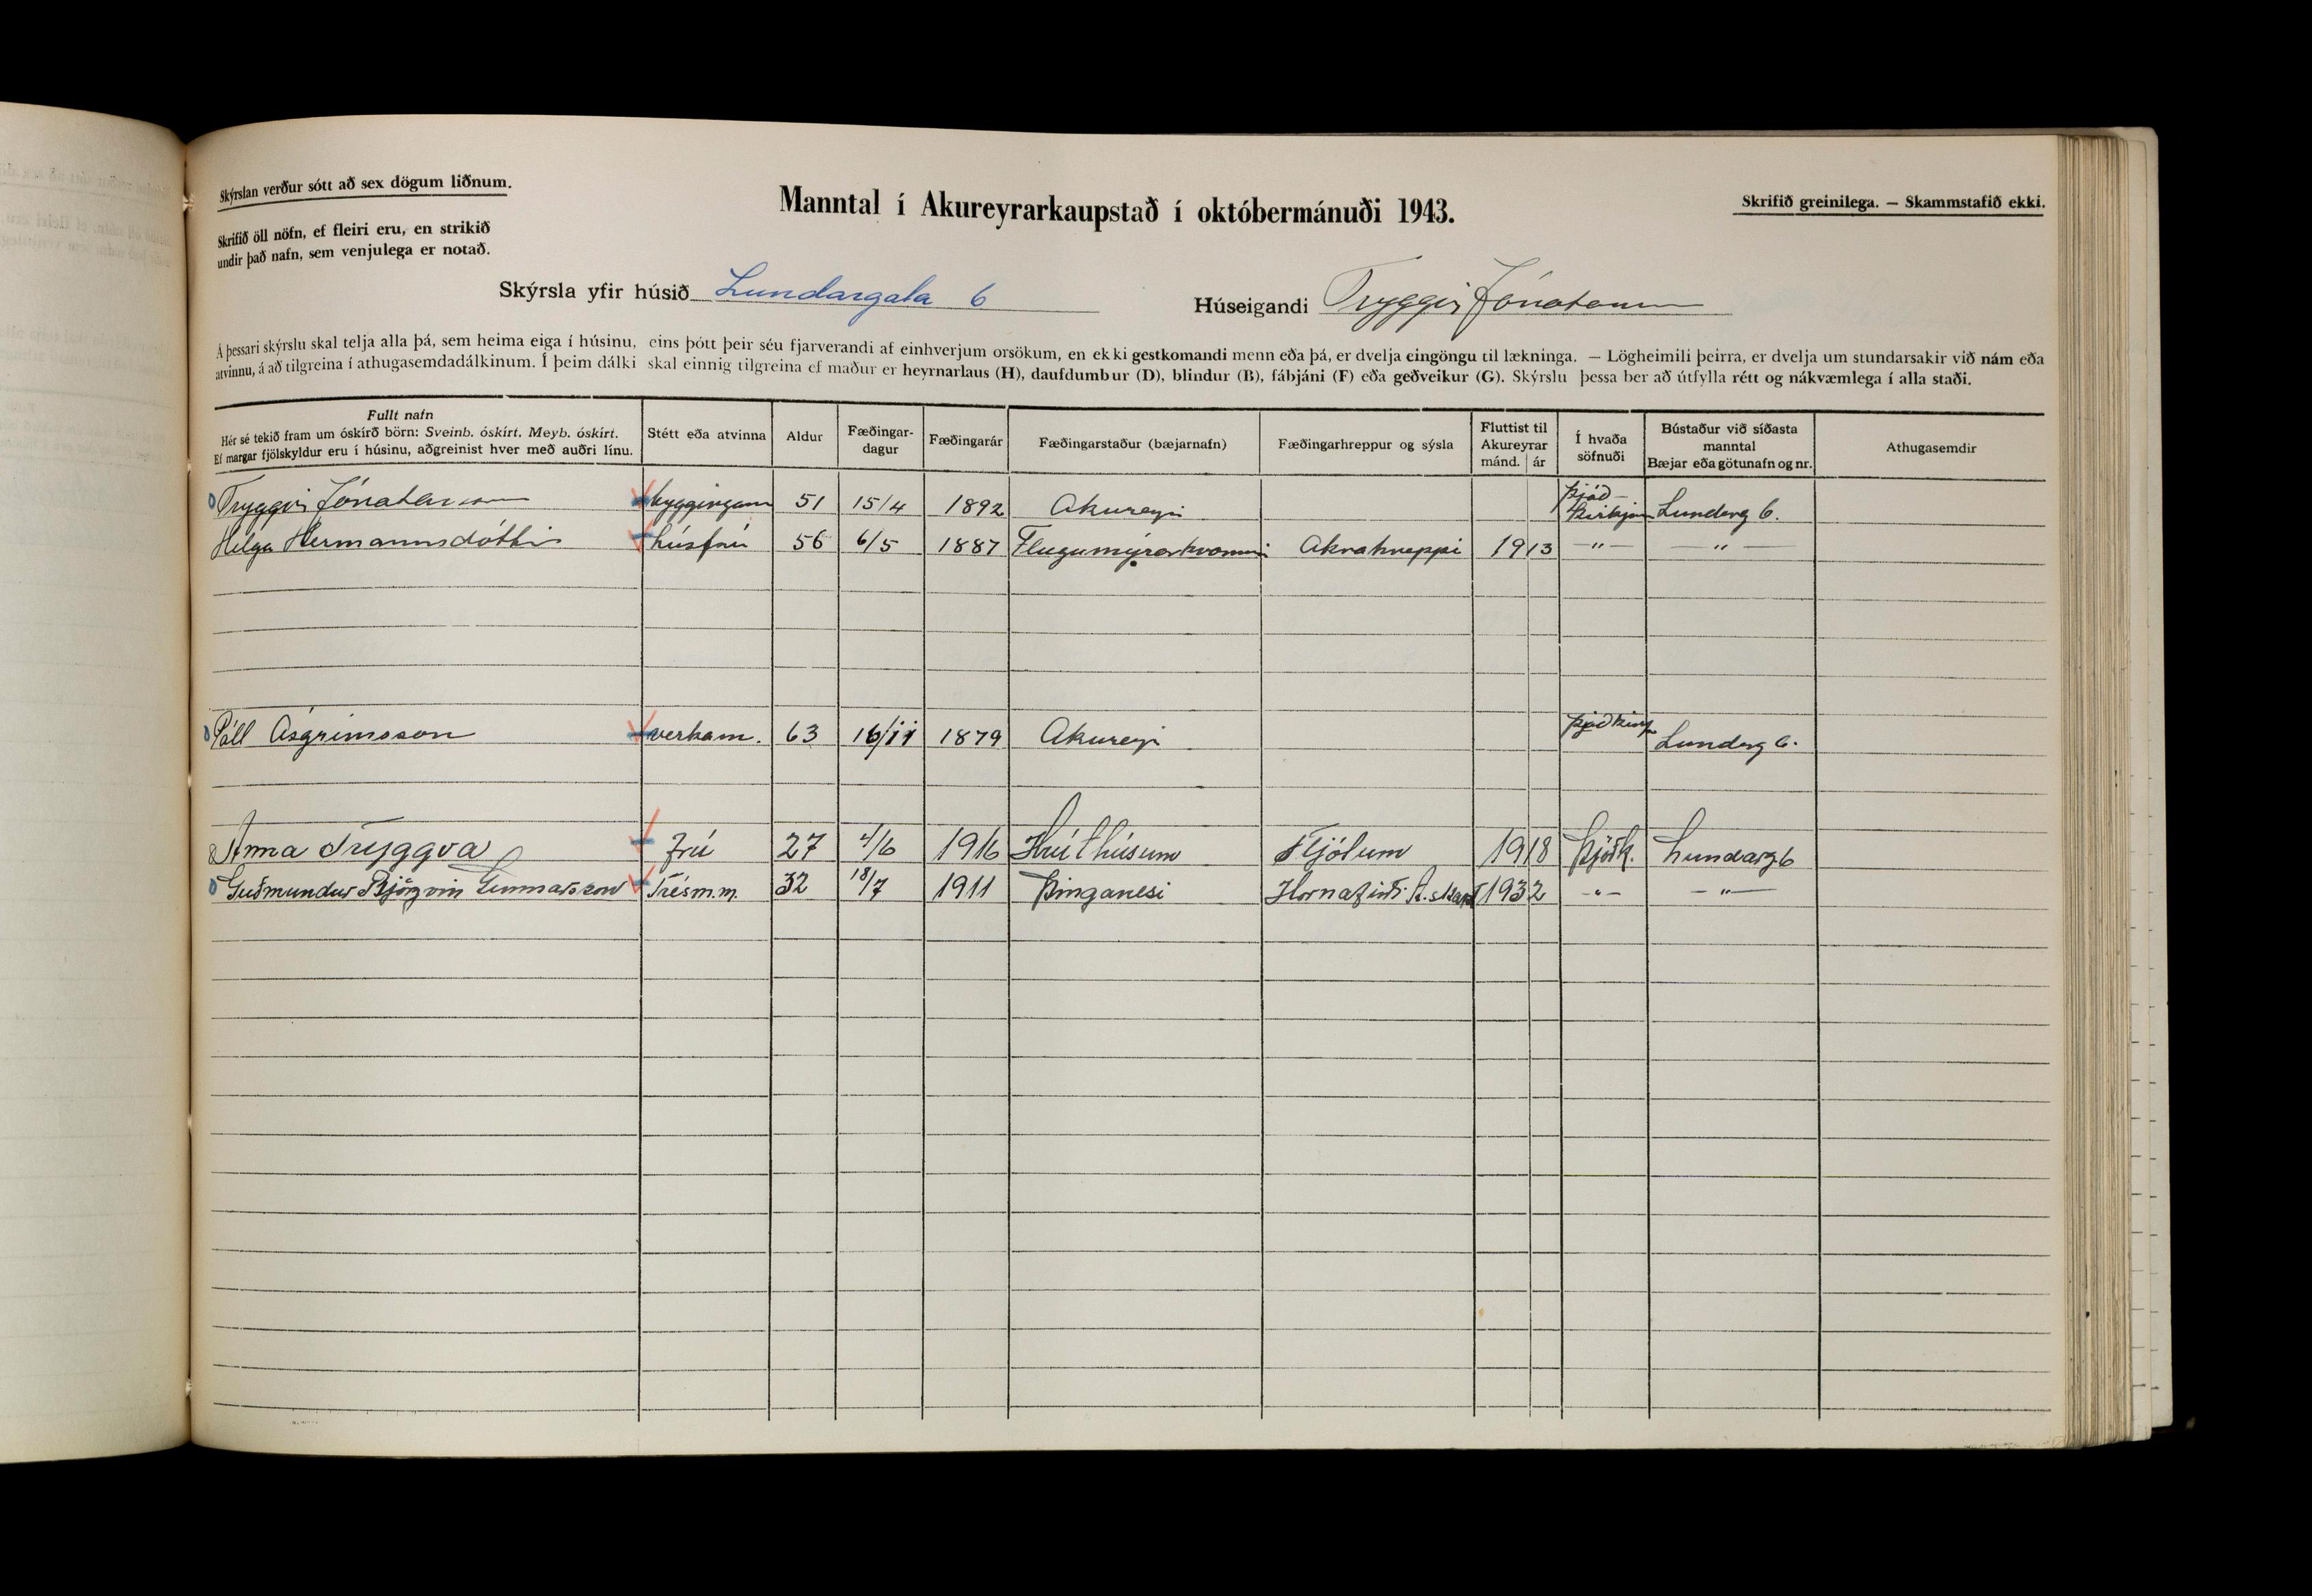 Skýrslan verður sótt að sex dögum liðnum.
Skrifið öll nöfn, ef fleiri eru, en strikið
undir það nafn, sem venjulega er notað.
Manntal í Akureyrarkaupstað í októbermánuði 1943.
Skrifið greinilega. — Skammstafið ekki.
Skýrsla yfir húsið Lundargata 6
Húseigandi Tryggvi Jónatansson
Á þessari skýrslu skal telja alla þá, sem heima eiga í húsinu, eins þótt þeir séu fjarverandi af einhverjum orsökum, en ekki gestkomandi menn eða þá, er dvelja eingöngu til lækninga. — Lögheimili þeirra, er dvelja um stundarsakir við nám eða
atvinnu, á að tilgreina í athugasemdadálkinum. Í þeim dálki skal einnig tilgreina ef maður er heyrnarlaus (H), daufdumbur (D), blindur (B), fábjáni (F) eða geðveikur (G). Skýrslu þessa ber að útfylla rétt og nákvæmlega í alla staði.
Fullt nafn
Hér sé tekið fram um óskírð börn: Sveinb. óskírt. Meyb. óskírt.
Ef margar fjölskyldur eru í húsinu, aðgreinist hver með auðri línu.
Stétt eða atvinna
Aldur
Fæðingar-
dagur
Fæðingarár
Fæðingarstaður (bæjarnafn)
Fæðingarhreppur og sýsla
Fluttist til
Akureyrar
mánd. | ár
Í hvaða
söfnuði
Bústaður við síðasta
manntal
Bæjar eða götunafn og nr.
Athugasemdir
Tryggvi Jónatansson byggingam 51 15/4 1892 Akureyri þjóð-
kirkjan Lundarg 6.
Helga Hermannsdóttir húsfrú 56 6/5 1887 Flugumýrarhvammi Akrahreppi 1913 —"— —"—
Páll Ásgrímsson verkam. 63 16/11 1879 Akureyri þjóðkirkj Lundarg 6.
Anna Tryggva frú 27 4/6 1916 Hrúthúsum Fljótum 1918 Þjóðk. Lundarg 6
Guðmundur Björgvin Gunnarsson Trésm.m. 32 18/7 1911 Þinganesi Hornafirði A.skaft 1932 —"— —"—